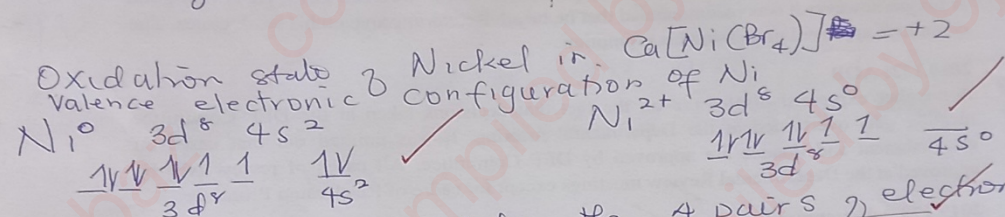 Oxidation state of Nickel in Ca[Ni(Br4)] = +2
Valence electronic configuration of Ni
Ni⁰ 3d⁸ 4s² Ni²⁺ 3d⁸ 4s⁰
3d⁸ 4s² 3d⁸ 4s⁰
4 pairs of electron